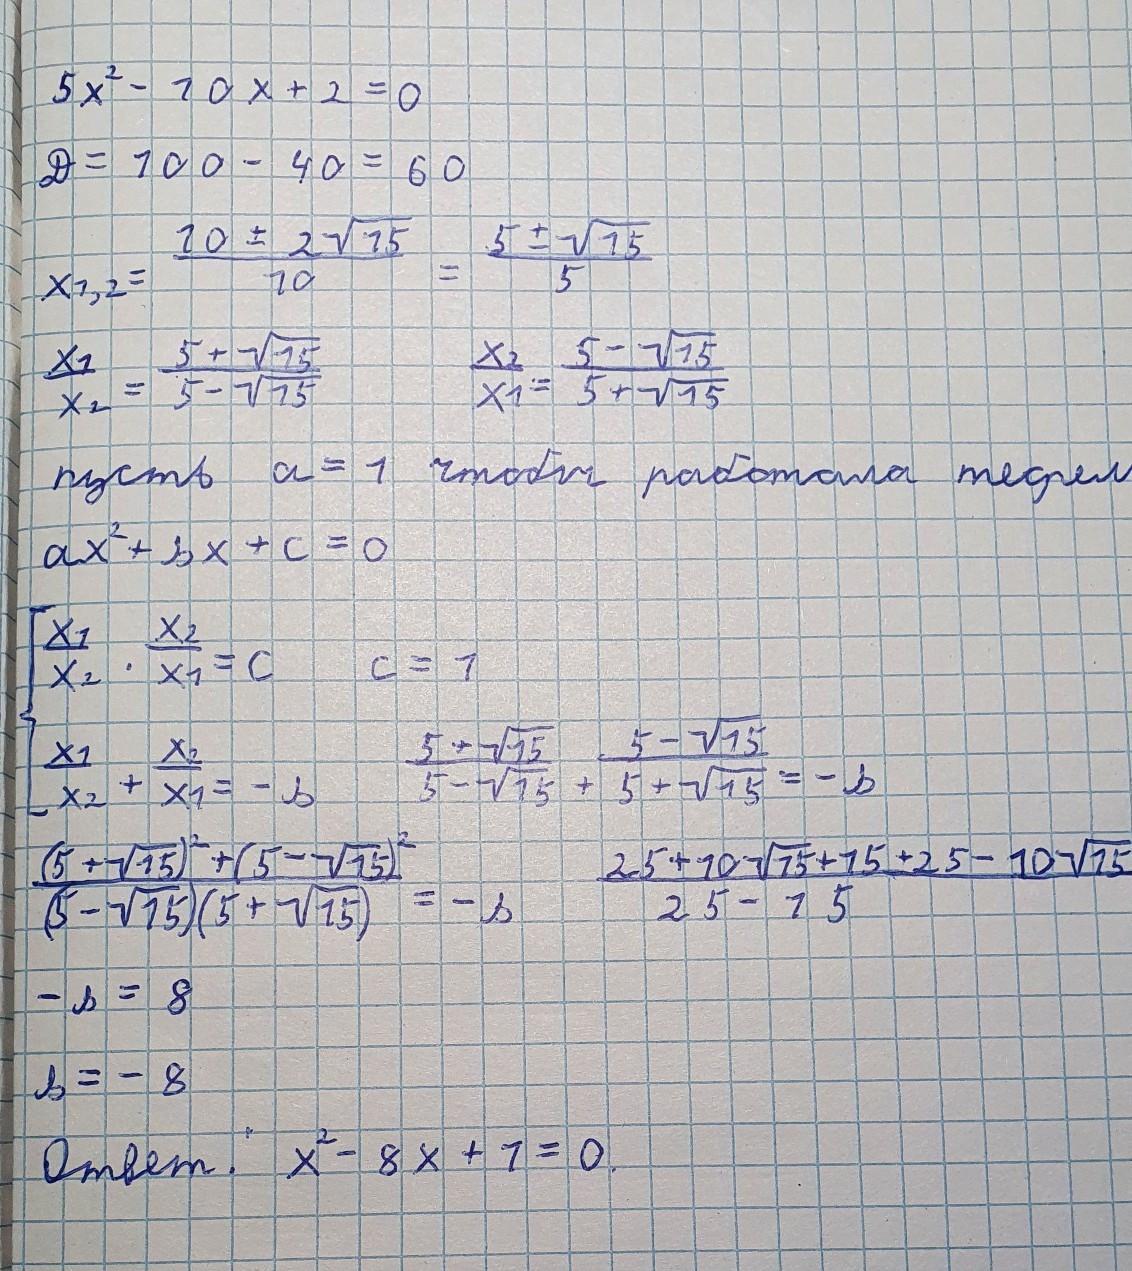 5x² - 10x + 2 = 0
D = 100 - 40 = 60
x1,2 = (10 ± 2√15)/10 = (5 ± √15)/5
x1/x2 = (5 + √15)/(5 - √15) x2/x1 = (5 - √15)/(5 + √15)
пусть a = 1 чтобы работала
ax² + bx + c = 0
x1/x2 · x2/x1 = c c = 1
x1/x2 + x2/x1 = -b (5 + √15)/(5 - √15) + (5 - √15)/(5 + √15) = -b
((5 + √15)² + (5 - √15)²)/((5 - √15)(5 + √15)) = -b (25 + 10√15 + 15 + 25 - 10√15)/(25 - 15)
-b = 8
b = -8
Ответ: x² - 8x + 1 = 0.